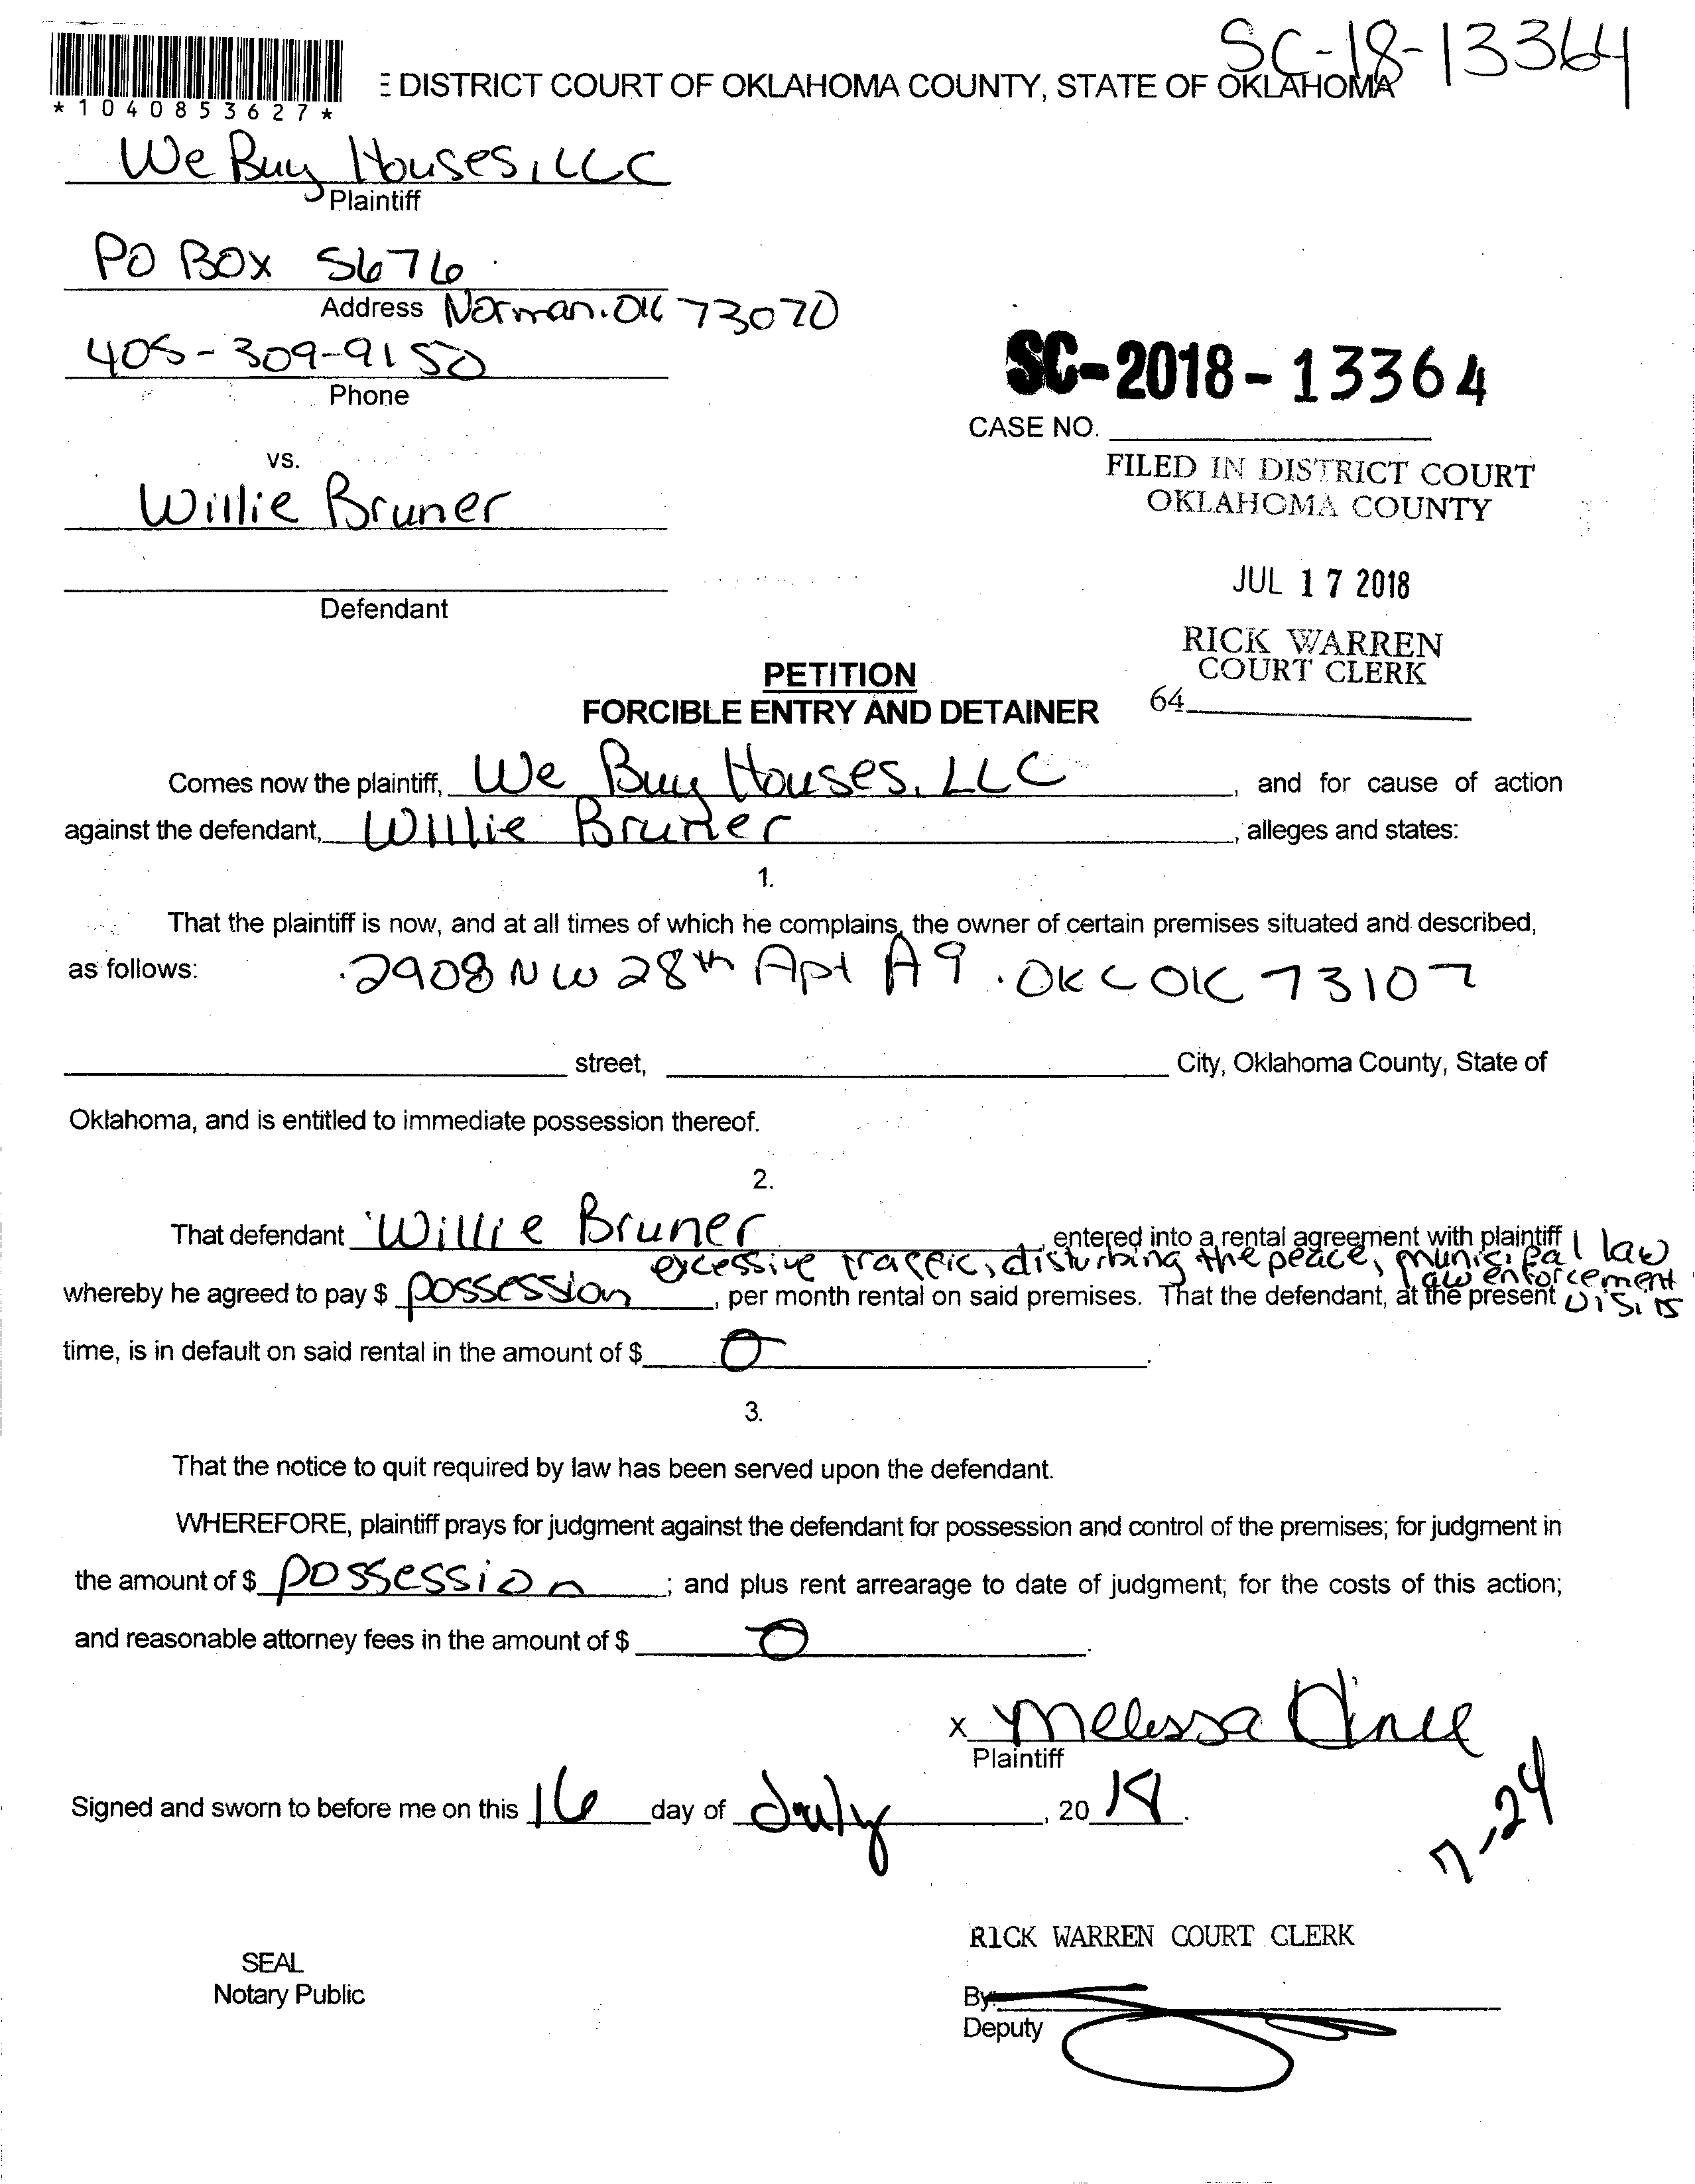 SC-18-13364
*1040853627*
E DISTRICT COURT OF OKLAHOMA COUNTY, STATE OF OKLAHOMA
We Buy Houses, LLC
Plaintiff
PO Box 5676
Address Norman. OK 73070
405-309-9150
Phone
SC-2018-13364
CASE NO.
vs.
FILED IN DISTRICT COURT
OKLAHOMA COUNTY
Willie Bruner
JUL 17 2018
Defendant
RICK WARREN
COURT CLERK
64
PETITION
FORCIBLE ENTRY AND DETAINER
Comes now the plaintiff, We Buy Houses, LLC, and for cause of action
against the defendant, Willie Bruner, alleges and states:
1.
That the plaintiff is now, and at all times of which he complains, the owner of certain premises situated and described,
as follows: 2908 NW 28th Apt A9. OKC OK 73107
street, City, Oklahoma County, State of
Oklahoma, and is entitled to immediate possession thereof.
2.
That defendant Willie Bruner, entered into a rental agreement with plaintiff
excessive traffic, disturbing the peace, municipal law
law enforcement visits
whereby he agreed to pay $ possession, per month rental on said premises. That the defendant, at the present
time, is in default on said rental in the amount of $ 0.
3.
That the notice to quit required by law has been served upon the defendant.
WHEREFORE, plaintiff prays for judgment against the defendant for possession and control of the premises; for judgment in
the amount of $ possession; and plus rent arrearage to date of judgment; for the costs of this action;
and reasonable attorney fees in the amount of $ 0.
x Melissa
Plaintiff
Signed and sworn to before me on this 16 day of July, 2018.
7-24
RICK WARREN COURT CLERK
SEAL
Notary Public
By:
Deputy